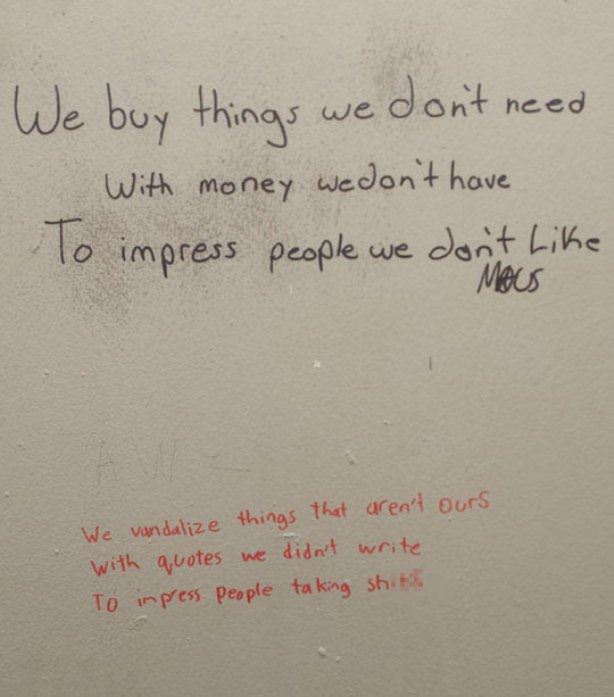 We buy things we don't need
With money we don't have
To impress people we don't Like
A W
We vandalize things that aren't ours
With quotes we didn't write
To impress people taking